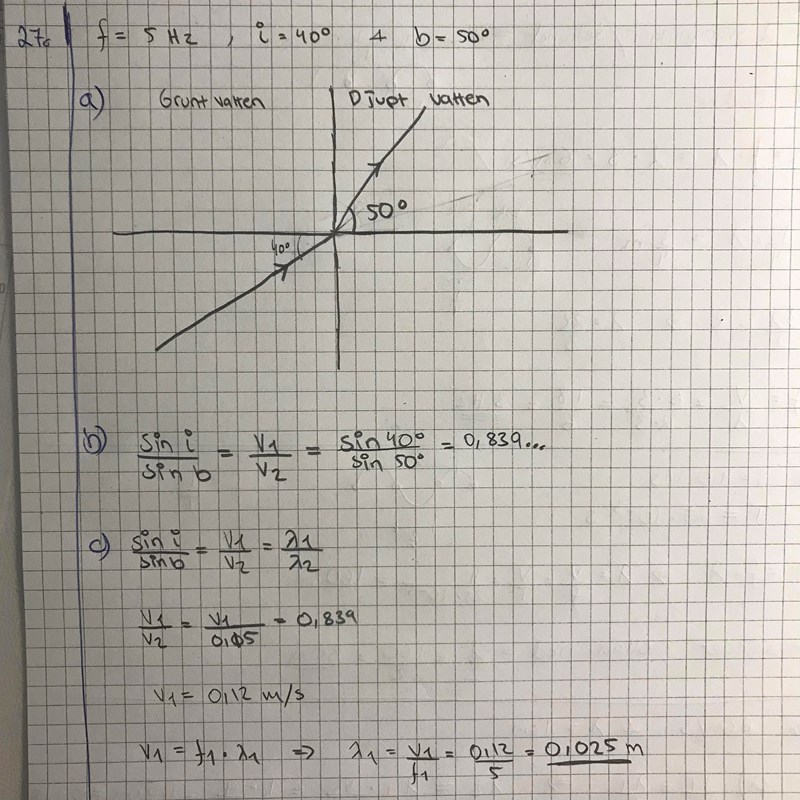 27. f = 5 Hz , i = 40° & b = 50°
a) Grunt vatten Djupt vatten
50°
40°
b) sin i / sin b = v1 / v2 = sin 40° / sin 50° = 0,839...
c) sin i / sin b = v1 / v2 = λ1 / λ2
v1 / v2 = v1 / 0,15 = 0,839
v1 = 0,12 m/s
v1 = f1 · λ1 ⇒ λ1 = v1 / f1 = 0,12 / 5 = 0,025 m